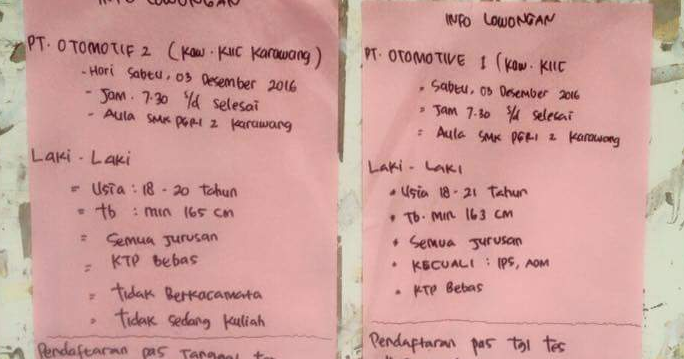 INFO LOWONGAN
PT. OTOMOTIF 2 (Kaw. KIIC Karawang)
- Hari Sabtu, 03 Desember 2016
- Jam. 7.30 s/d selesai
- Aula SMK PGRI 2 Karawang
Laki - Laki
= Usia : 18 - 20 tahun
= tb : min 165 cm
= Semua Jurusan
= KTP Bebas
= tidak Berkacamata
= tidak Sedang Kuliah
Pendaftaran pas Tanggal
INFO LOWONGAN
PT. OTOMOTIVE 1 (Kaw. KIIC
= Sabtu, 03 Desember 2016
= Jam 7.30 s/d selesai
= Aula SMK PGRI 2 Karawang
Laki - Laki
• Usia 18 - 21 Tahun
• Tb. Min 163 cm
• Semua Jurusan
• KECUALI : IPS, ADM
• KTP Bebas
Pendaftaran pas tgl tes